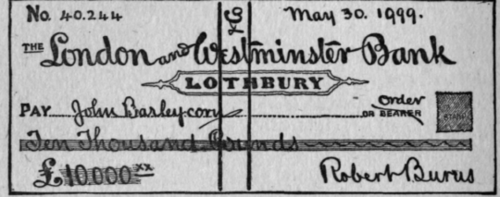 No. 40.244 May 30. 1999.
THE London and Westminster Bank
LOTHBURY
PAY John Barleycorn Order
OR BEARER
Ten Thousand Pounds
£10.000 xx Robert Burus